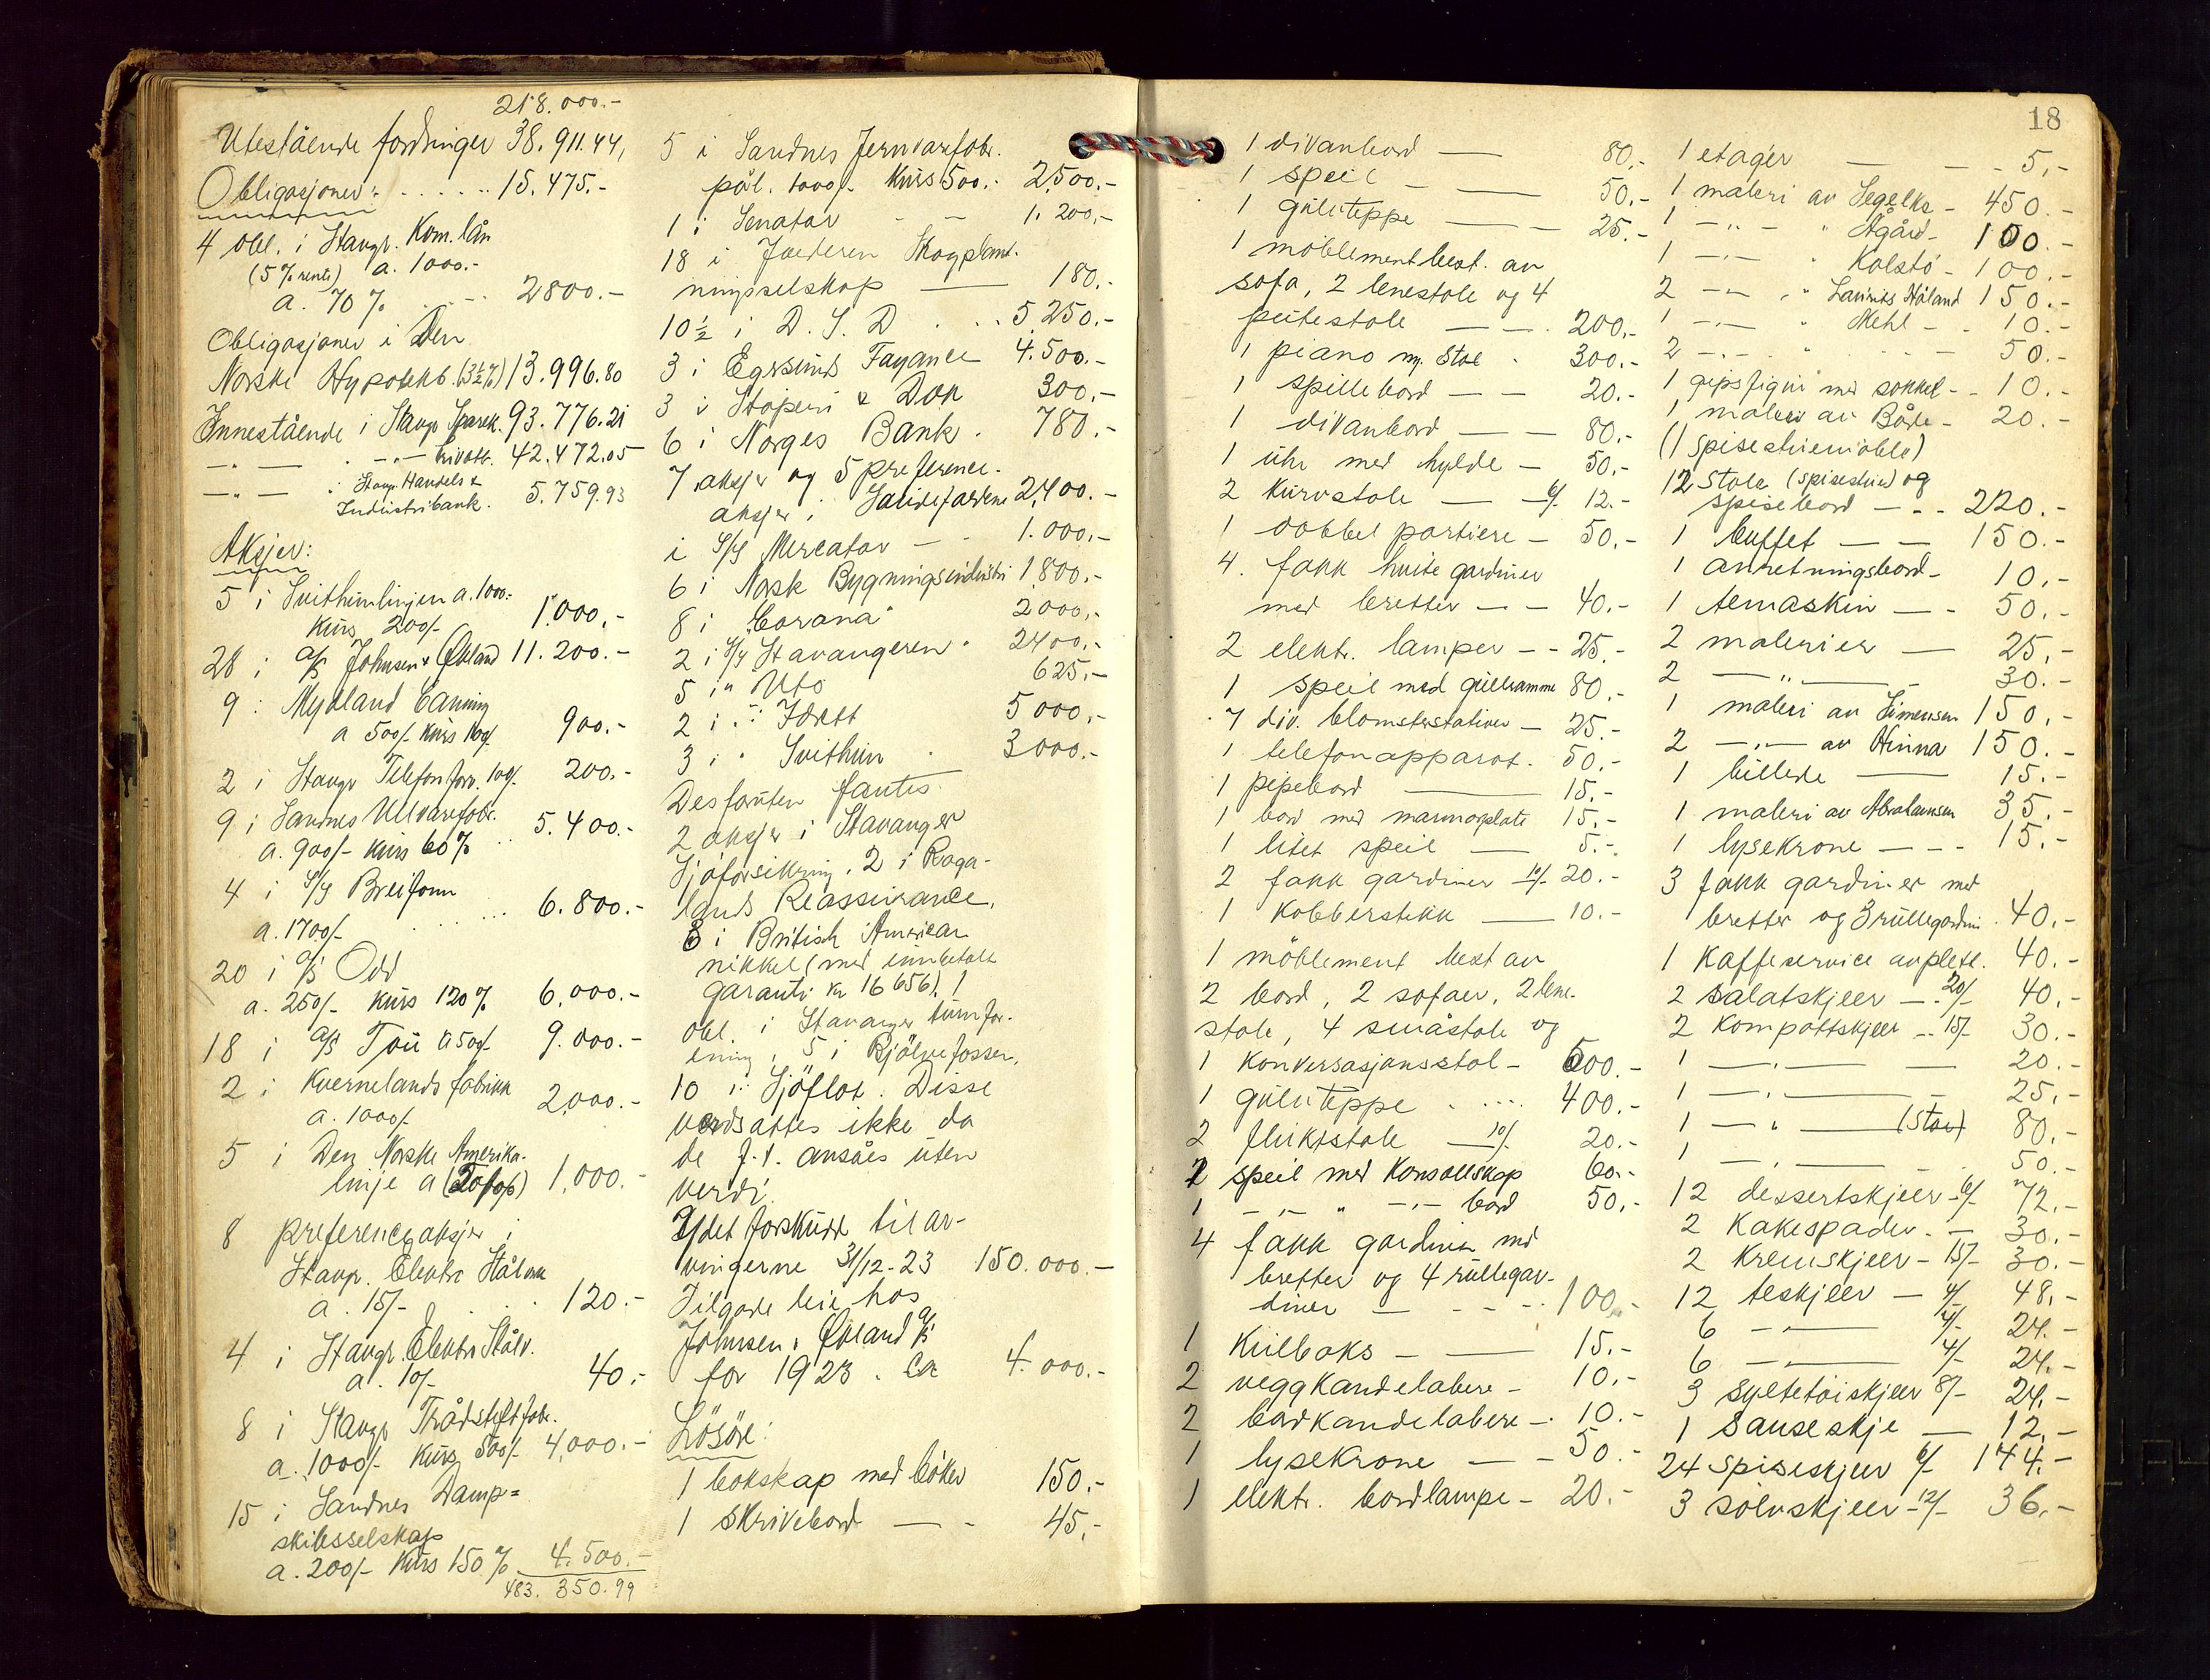 218.000.-
Utestående fordringer 38.911.44,
Obligasjoner: . . . . . 15.475.-
4 obl. i Stavgr. Kom. lån
(5 % rente) a. 1000.-
a. 70 % . . . . 2800.-
Obligasjoner i Den
Norske Hypotekb. (3½ %) 13.996.80
Innestående i Stavgr Sparek. 93.776.21
-"- — . -"- Privatb. 42.472.05
-"- — " Stavgr. Handels &
Industribank. 5.759.93
Aksjer:
5 i Svithunlinjen a. 1000.-
Kurs 200/- 1.000.-
28 i A/S Johnsen & Økland 11.200.-
9 : Mykland Caning
a 500/- Kurs 100/- 900.-
2 i Stavgr Telefonforr. 100/- 200.-
9 i Sandnes Uldvarefabr.
a. 900/- Kurs 60 % . . 5.400.-
4 i S/S Breifonn
a. 1700/- . . . . 6.800.-
20 i A/S Odd
a. 250/- Kurs 120 % 6.000.-
18 i A/S Tou a 500/- 9.000.-
2 i Kvernelands fabrikk
a. 1000/- 2000.-
5 i Den Norske Amerika-
linje a (20 %) 1.000.-
8 preferenceaksjer i
Stavgr. Elektro Stålverk
a. 15/- . . . 120.-
4 i Stavgr. Elektro Stålv.
a. 10/- 40.-
8 i Stavgr Trådstiftfabr.
a. 1000/- Kurs 500/- 4.000.-
15 i Sandnes Damp=
skibsselskap
a. 200/- Kurs 150 % 4.500.-
483.350.99
5 i Sandnes Jernvarefabr.
pål. 1000/- Kurs 500.- 2.500.-
1 i Senator - - 1.200.-
18 i Jæderen Skogplant-
ningsselskap — 180.-
10½ i D. S. D . . . 5.250.-
3 i Egersunds Fayance 4.500.-
3 i Støperi & Dok 300.-
6 i Norges Bank . 780.-
7 aksjer og 5 preference-
aksjer i Sandefjordene 2,400.-
i S/S Mercator - - 1.000.-
6 i Norsk Bygningsindustri 1800.-
8 i "Corona" 2000.-
2 i S/S Stavangeren . 2400.-
5 i " Uto 625.-
2 i " Idrett 5000.-
3 i " Svithun . 3000.-
Desforuten fantes
2 aksjer i Stavanger
Sjøforsikring, 2 i Roga-
lands Reassurance,
8 i British American
nikkel (med innbetalt
garanti kr 16656), 1
obl. i Stavanger turnfor-
ening, 5 i Bjölvefossen,
10 i " Sjöflot. Disse
verdsattes ikke da
de f.t. ansåes uten
verdi.
Ydet forskudd til ar-
vingerne 31/12-23 150.000.-
Tilgode leie hos
Johnsen & Økland A/S
for 1923. Ca 4.000.-
Lösöre:
1 bokskap med böker 150.-
1 skrivebord — - 45.-
18
1 divanbord — 80.-
1 speil - — 50.-
1 gulvteppe — - 25.-
1 möblement best. av
sofa, 2 lenestole og 4
pütestole — - . 200.-
1 piano m. stol . 300.-
1 spillebord — - 20.-
1 divanbord — - 80.-
1 uhr med hylde — 50.-
2 Kurvstole — - 6/- 12.-
1 dobbel portiere - 50.-
4. fakk hvite gardiner
med bretter — - 40.-
2 elektr. lamper — - 25.-
1 speil med gullramme 80.-
7 div. blomsterstativer - 25.-
1 telefonapparat . 50.-
1 pipebord — 15.-
1 bord med marmorplate 15.-
1 litet speil — 5.-
2 fakk gardiner 10/- 20.-
1 Kobberstikk — 10.-
1 möblement best av
2 bord, 2 sofaer, 2 lene-
stole, 4 småstole og
1 Konversasjonsstol - 500.-
1 gulvteppe . . . . . 400.-
2 fluktstole — 10/- 20.-
1 speil med Konsollskap 60.-
1 - "- " -"- bord 50.-
4 fakk gardiner med
bretter og 4 rullegar-
diner — - - - . 100.-
1 Kulboks - — 15.-
2 veggkandelabere - 10.-
2 bordkandelabere - . 10.-
1 lysekrone — - 50.-
1 elektr. bordlampe - 20.-
1 etager — - - 5.-
1 maleri av Segelke - 450.-
1 - "- - " Ågård - 100.-
1 -"- " Kolstö - 100.-
2 -"- " Lauritz Håland 150.-
1 -"- " Mehl - . 10.-
2 -"- " - - - - 50.-
1 gipsfigur med sokkel - - 10.-
1 maleri av Börde - 20.-
(1 Spisestuemöble)
12 Stole (spisestue) og
Spisebord — - - 220.-
1 buffet — - 150.-
1 anretningsbord - 10.-
1 temaskin — - 50.-
2 malerier — 25.-
2 —"— - 30.-
1 maleri av Simensen 150.-
2 —"— av Hinna 150.-
1 billede — 15.-
1 maleri av Abrahamsen 35.-
1 lysekrone — - - 15.-
3 fakk gardiner med
bretter og 3 rullegardin . 40.-
1 Kaffeservice av plett. 40.-
2 salatskjeer — 20/- 40.-
2 Kompottskjeer - - 15/- 30.-
1 —"— — 20.-
1 —"— 25.-
1 —"— (Stor) 80.-
1 —"— 50.-
12 dessertskjeer - 6/- 72.-
2 Kakespader . - 30.-
2 Kremskjeer - 15/- 30.-
12 teskjeer — 4/- 48.-
6 —"— 4/- 24.-
6 —"— 4/- 24.-
3 syltetöiskjeer 8/- 24.-
1 Sauseskje — 12.-
24 Spiseskjeer 6/- 144.-
3 sölvskjeer - 12/- 36.-